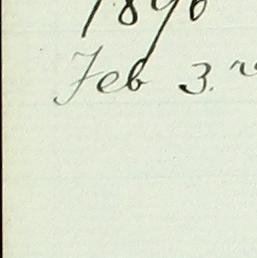 1896
Feb 3.